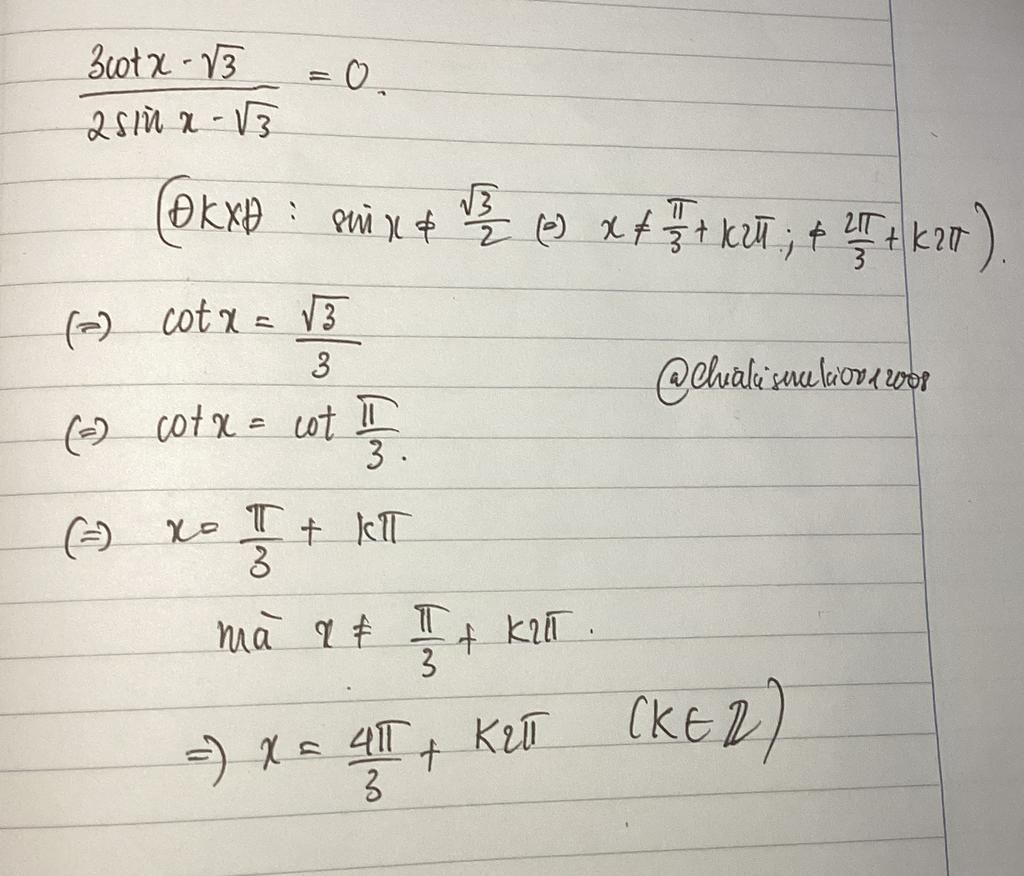 (3cot x - √3)/(2 sin x - √3) = 0.
(ĐKXĐ : sin x ≠ √3/2 (=) x ≠ π/3 + k2π ; ≠ 2π/3 + k2π).
(=) cot x = √3/3
(=) cot x = cot π/3.
(=) x = π/3 + kπ
mà x ≠ π/3 + k2π.
=) x = 4π/3 + k2π (k ∈ Z)